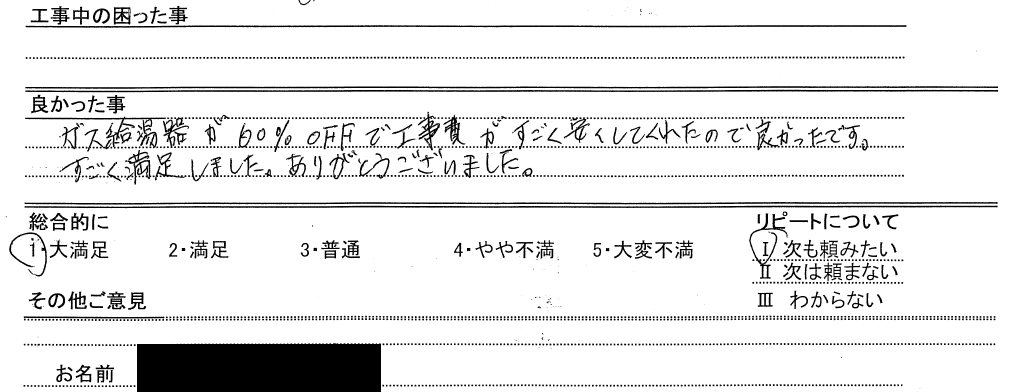 工事中の困った事
良かった事
ガス給湯器が60% OFFで工事費がすごく安くしてくれたので良かったです。
すごく満足しました。ありがとうございました。
総合的に リピートについて
1・大満足 2・満足 3・普通 4・やや不満 5・大変不満 Ⅰ 次も頼みたい
Ⅱ 次は頼まない
その他ご意見 Ⅲ わからない
お名前